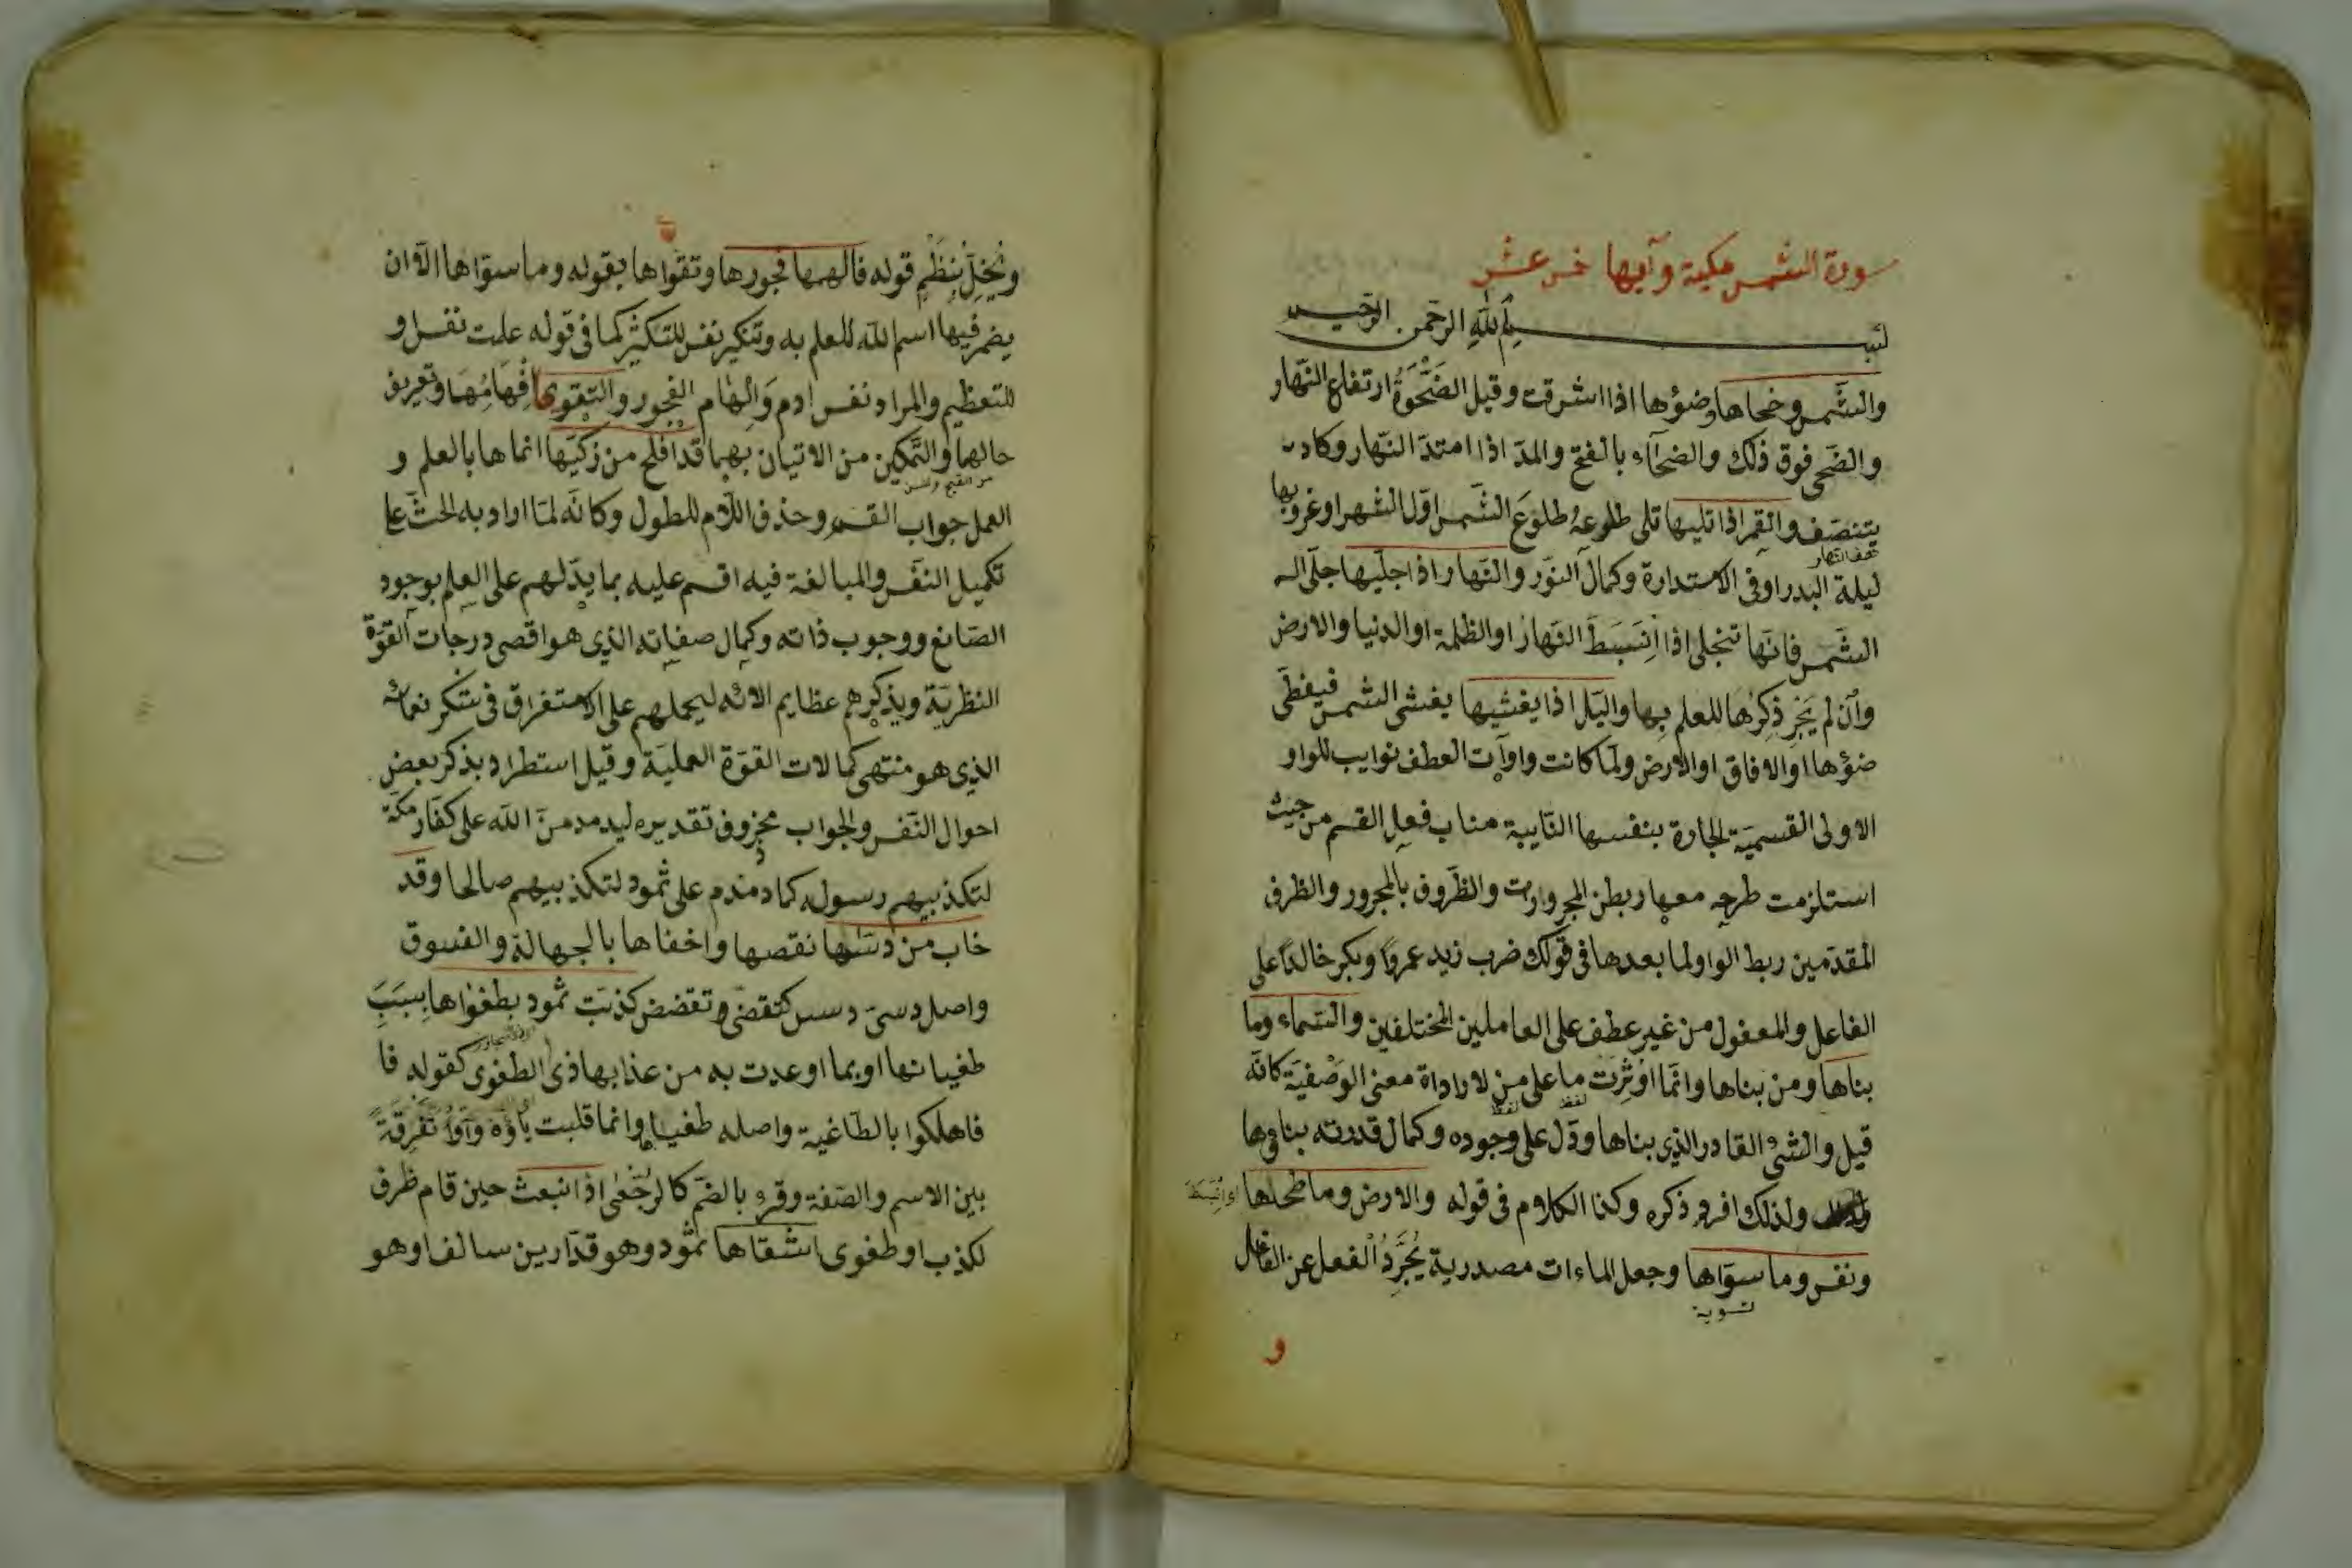 سورة الشمس مكية وآيها خمس عشر
بسم الله الرحمن الرحيم
والشمس وضحاها وضؤها اذا اشرقت وقيل الضَّحْوَةُ ارتفاع النّهار
والضّحى فوق ذلك والضحآء بالفتح والمدّ اذا امتدّ النّهار وكاد
يتنصّف والقمر اذا تليها تلى طلوعهُ طلوعَ الشّمس اوّل الشهر او غروبها
نصف النهار
ليلة البدر او فى الاستدارة وكمال النّور والنّهار اذا جليّها جلّى
الشّمس فانّها تنجلى اذا اِنْبَسَطَ النّهار او الظلمة او الدنيا والارض
وان لم يَجْرِ ذِكرُها للعلم بها واليّل اذا يغشيها يغشى الشمس فيغطّى
ضؤها او الافاق او الارض ولمّا كانت واوآت العطف نوايب للواو
الاولى القسميّة الجارّة بنفسها النّايبة مناب فعل القسم من حيث
استلزمت طرحه معها ربطن المجرورات والظّروف بالمجرور والظرف
المقدّمين ربط الواو لما بعدها فى قولك ضرب زيد عمروًا وبكر خالدًا على
الفاعل والمعفول من غير عطف على العاملين المختلفين والسّماء وما
بناها ومن بناها وانّما اوثِرَت ما على من لاراداة معنى الوَصْفيّة كانّه
لفظ لفظ
قيل والشئ القادر الذى بناها ودّل على وجوده وكمال قدرته بناؤها
ولذلك افرد ذكره وكذا الكلام فى قوله والارض وما طحيها
ونفس وما سوّاها وجعل الماءات مصدرية يُجَرِّدُ الفعل عن الفاعل
تسوية
و
ويُخِلّ بِنَظْمِ قوله فالهمها فجورها وتقواها بقوله وما سوّاها الّا ان
يضمر فيها اسم الله للعلم به وتنكير نفس للتكثير كما فى قوله علمت نفس او
للتعظيم والمراد نفس ادم وَالْهام الفجور والتقوى اِفْهامُهما وتعريف
حالهما والتّمكين من الاتيان بهما قد افلح من زكيّها انماها بالعلم و
من القبح والحسن
العمل جواب القسم وحذف اللّام للطول وكانّه لمّا اراد به الحثّ على
تكميل النّفس والمبالغة فيه اقسم عليه بما يدّلهم على العلم بوجود
الصّانع ووجوب ذاته وكمال صفاته الذى هو اقصى درجات القوّة
النظريّة ويذكّرهم عظايم الائه ليحملهم على الاستغراق فى شكر نعمائه
الذى هو منتهى كمالات القوّة العمليّة وقيل استطراد بذكر بعض
احوال النّفس والجواب محزوف تقديره ليدمدمنّ الله على كفّار مكّة
لتكذبيهم رسوله كما دمدم على ثمود لتكذبيهم صالحا وقد
خاب من دسّيها نقصها واخفاها بالجهالة والفسوق
واصل دسىّ دسس كتقضى وتقضض كذبت ثمود بطغواها بِسَبَبِ
طغيانها او بما اوعدت به من عذابها ذى الطغوى كقوله فا
فاهلكوا بالطّاغية واصله طغيا وانما قلبت ياؤه واوًا تَفْرِقَةً
بين الاسم والصّفة وقرء بالضّم كالرُجْعَى اذ انبعث حين قام ظرف
لكذب او طغوى اشقاها ثمّود وهو قدّار بن سالف او هو